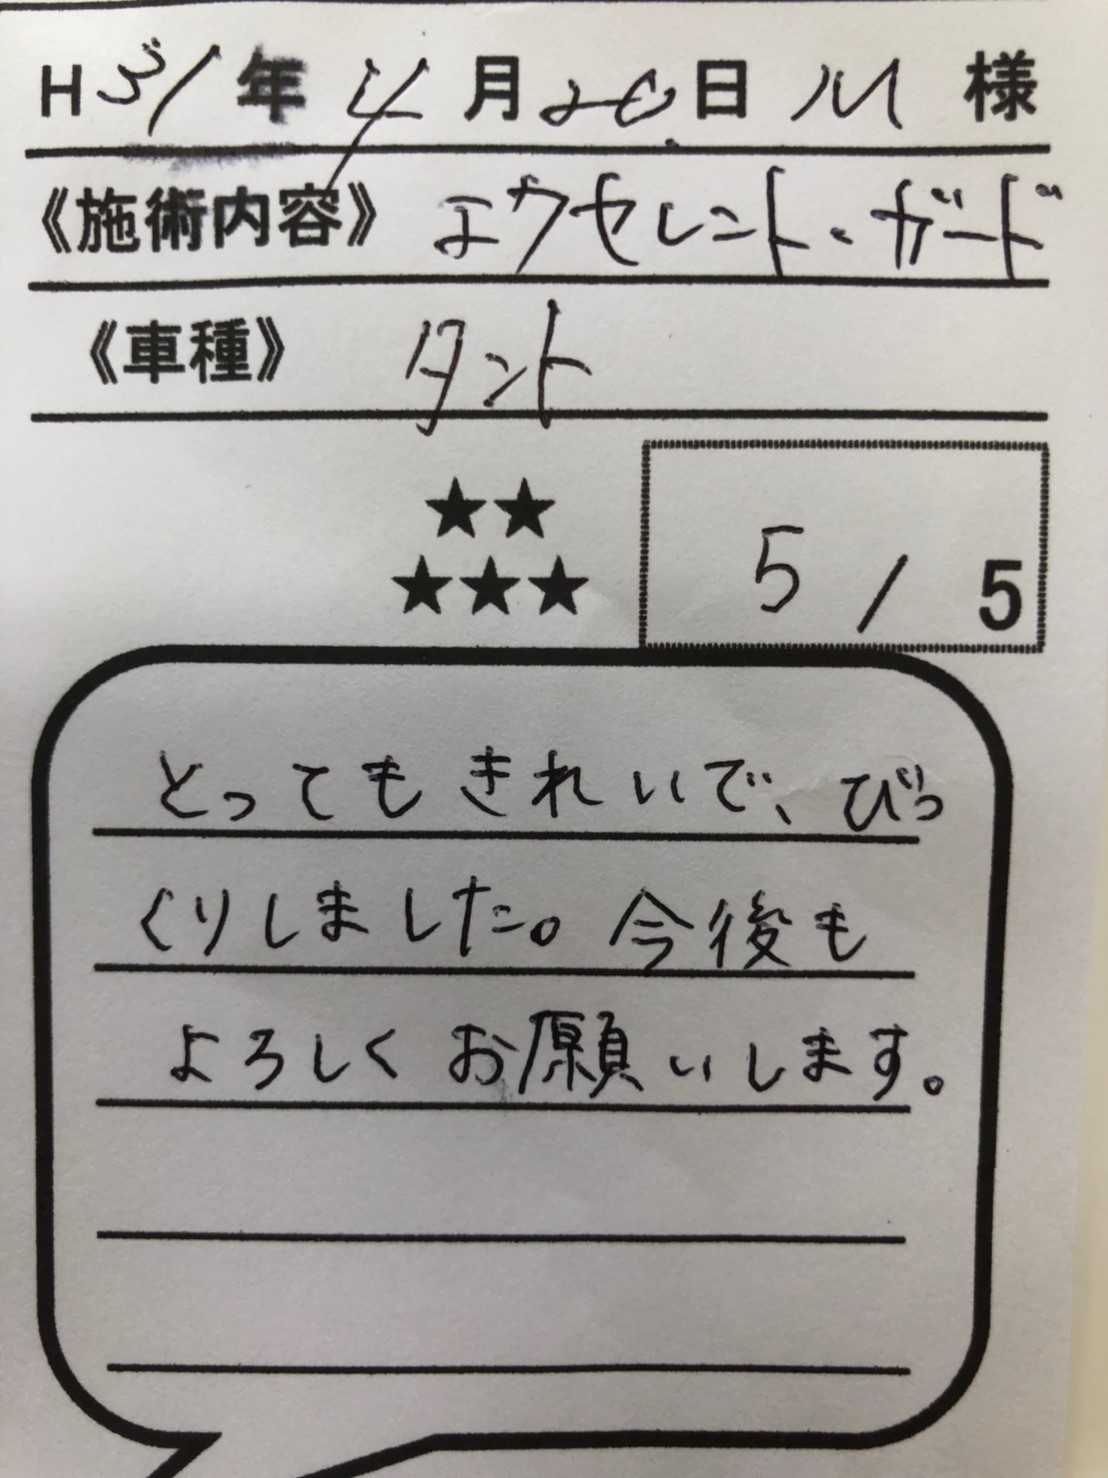 H31年4月20日 M 様
《施術内容》 エクセレント・ガード
《車種》 タント
★★
★★★
5 / 5
とってもきれいで、びっ
くりしました。今後も
よろしくお願いします。